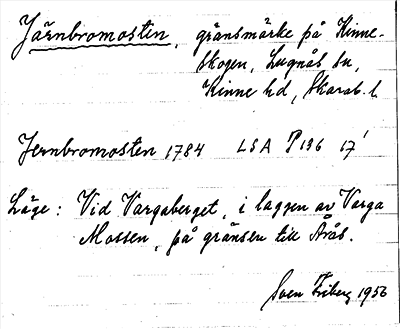 Järnbromosten, gränsmärke på Kinne-
skogen, Lugnås sn,
Kinne hd, Skarab. l.
Jernbromosten 1784 LSA P136 17'
Läge: Vid Vargaberget, i laggen av Varga
Mossen, på gränsen till Årås.
Sven Friberg 1956